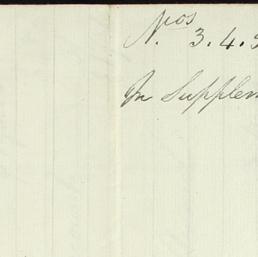 Nos
3.4.
In Supplem